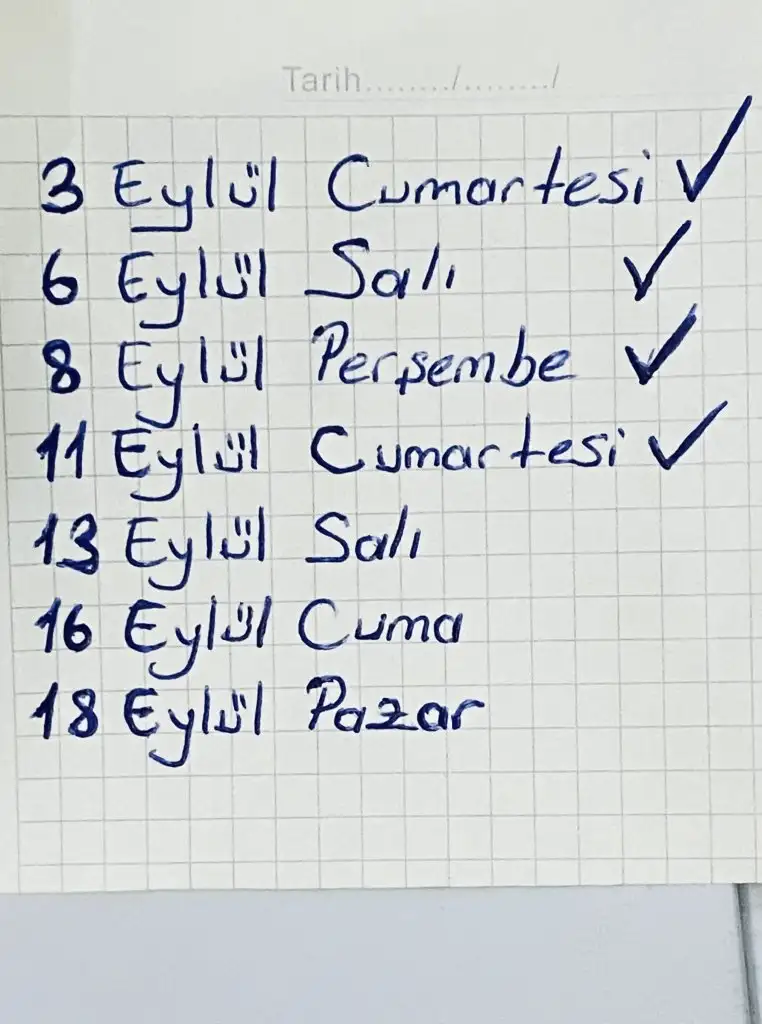 Tarih......../......../
3 Eylül Cumartesi ✓
6 Eylül Salı ✓
8 Eylül Perşembe ✓
11 Eylül Cumartesi ✓
13 Eylül Salı
16 Eylül Cuma
18 Eylül Pazar